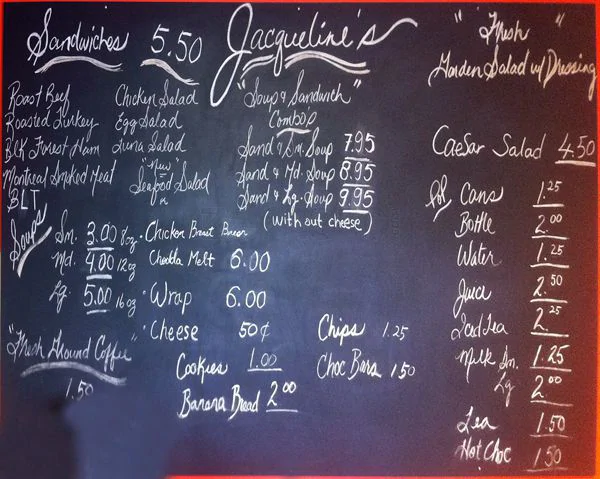 Sandwiches 5.50
Roast Beef
Roasted Turkey
Blk Forest Ham
Montreal Smoked Meat
BLT
Chicken Salad
Egg Salad
Tuna Salad
"New"
Seafood Salad
Soups
Sm. 3.00 8oz
Md. 4.00 12oz
Lg. 5.00 16oz
"Fresh Ground Coffee"
1.50
Jacqueline's
"Soup & Sandwich"
Combos
Sand & Sm. Soup 7.95
Sand & Md. Soup 8.95
Sand & Lg. Soup 9.95
(without cheese)
· Chicken Breast Bacon
Chedda Melt 6.00
· Wrap 6.00
· Cheese 50¢
Cookies 1.00
Banana Bread 2.00
Chips 1.25
Choc Bars 1.50
"Fresh"
Garden Salad w/ Dressing
Caesar Salad 4.50
Pop Cans 1.25
Bottle 2.00
Water 1.25
Juice 2.50
Iced Tea 2.25
Milk Sm. 1.25
Lg 2.00
Tea 1.50
Hot Choc 1.50